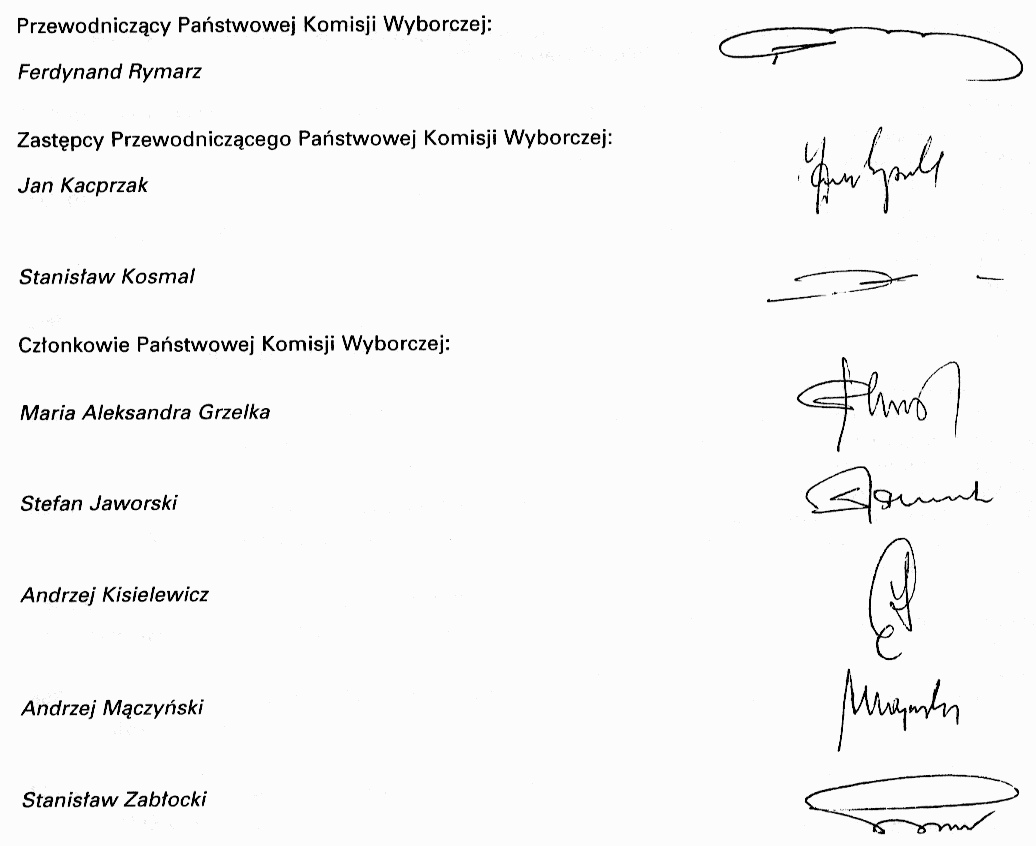 Przewodniczący Państwowej Komisji Wyborczej:
Ferdynand Rymarz
Zastępcy Przewodniczącego Państwowej Komisji Wyborczej:
Jan Kacprzak
Stanisław Kosmal
Członkowie Państwowej Komisji Wyborczej:
Maria Aleksandra Grzelka
Stefan Jaworski
Andrzej Kisielewicz
Andrzej Mączyński
Stanisław Zabłocki